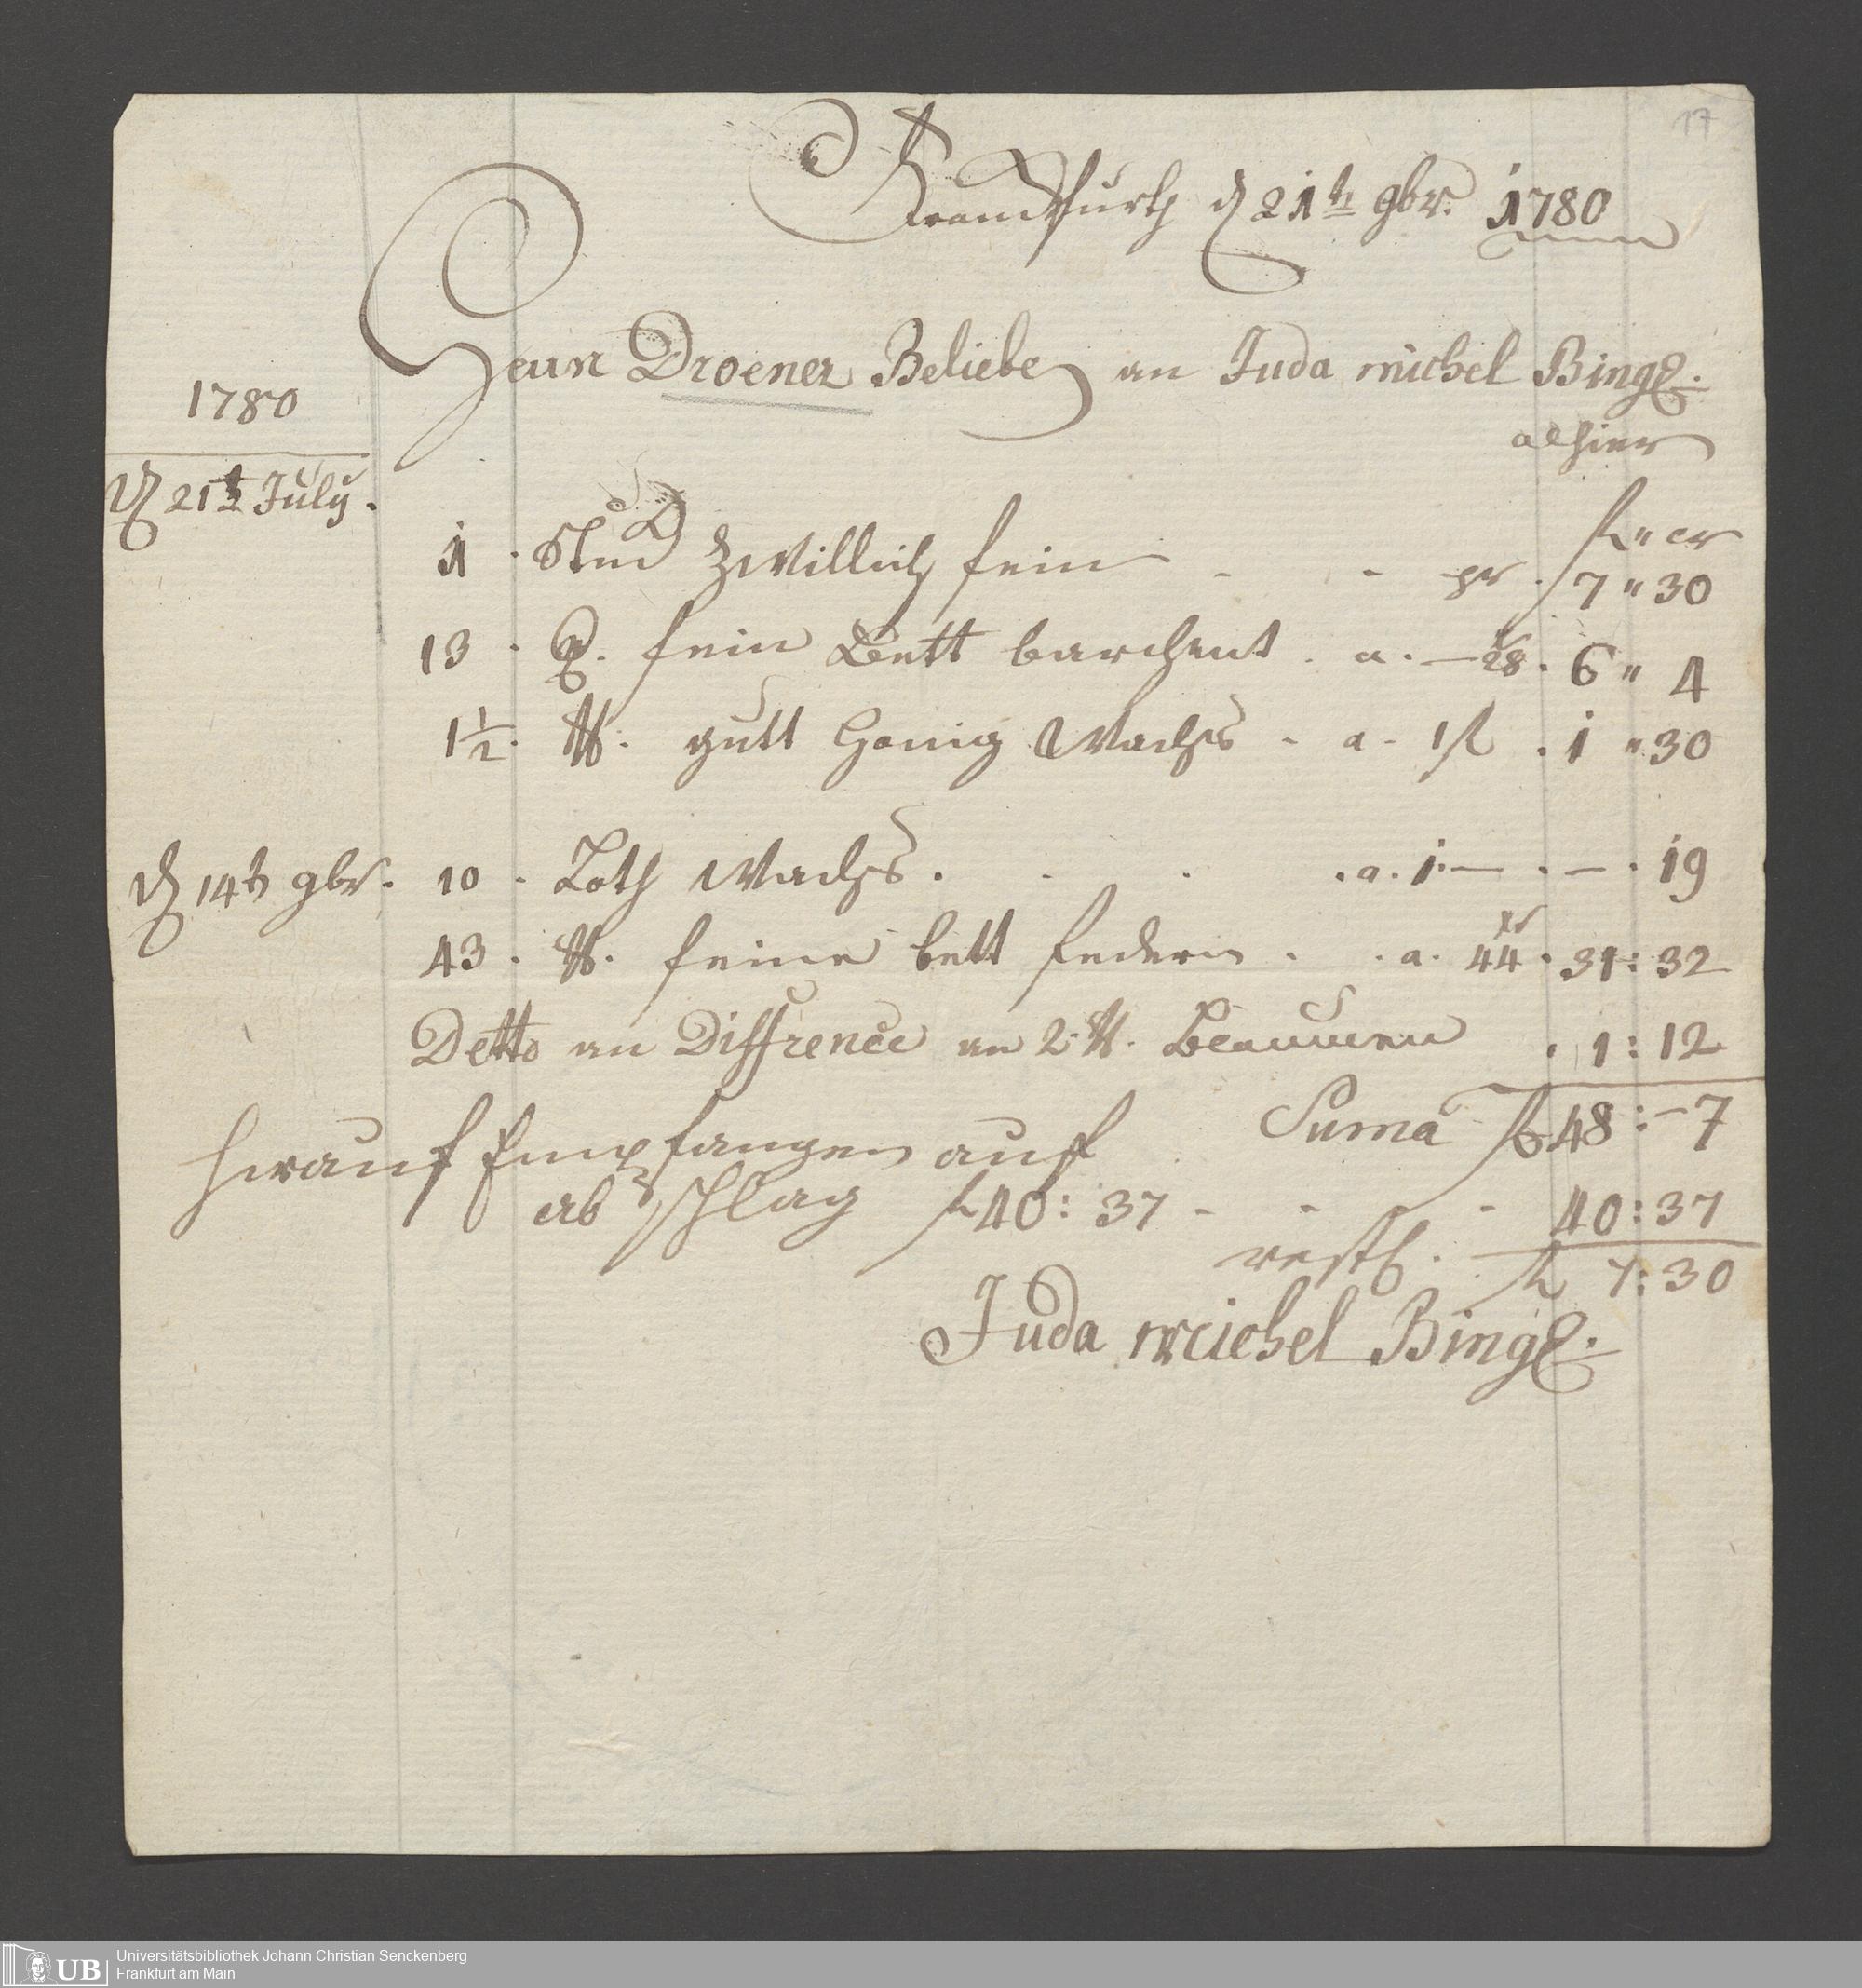 17
Franckfurth d 21th 9br. 1780
Herr Droener Beliebe an Juda michel Bing
alhier
1780
d 21t July.
fl " xr
1 . Stuck Zwillich fein - - pr . 7 " 30
13 . E. fein Bett barchent . a . — 28 xr . 6 " 4
1 1/2 . ℔. gutt Honig Wachs - a - 1 fl . 1 " 30
d 14t 9br. 10 . Loth Wachs . . . . a . 1 . — . — . 19
43 . ℔. feine bett federn . . a . 44 xr . 31 : 32
Detto an Diffrence an 2 ℔. . 1 : 12
Suma fl 48 : - 7
hirauf Empfangen auf
ab schlag fl 40 : 37 - - - 40 : 37
rest . fl 7 : 30
Juda michel Bing
UB
Universitätsbibliothek Johann Christian Senckenberg
Frankfurt am Main